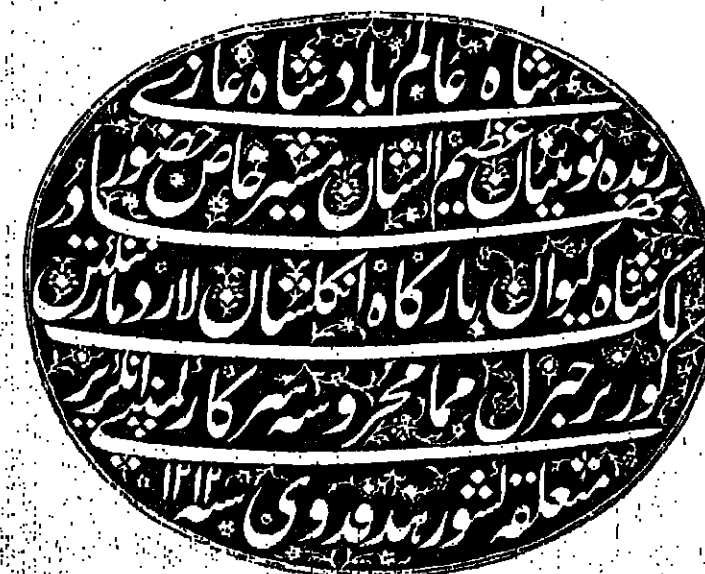 شاه عالم بادشاه غازے
زبده نوئینان عظیم الشان مشیر خاص حضور
شاه کیوان بارکاه انکلستان لارد مارننکتن بهادر
کورنر جنرل ممالک محروسه سرکار کمپنی انکریز
متعلقه کشور هند فدوی سنه ۱۲۱۲